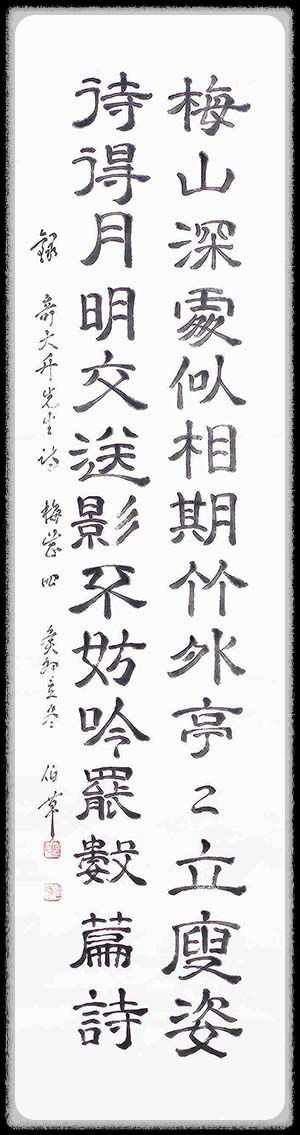 梅山深處似相期竹外亭〻立廋姿
待得月明交送影不妨吟罷數篇詩
錄 奇大升先生詩 梅 四 癸卯立冬 伯章